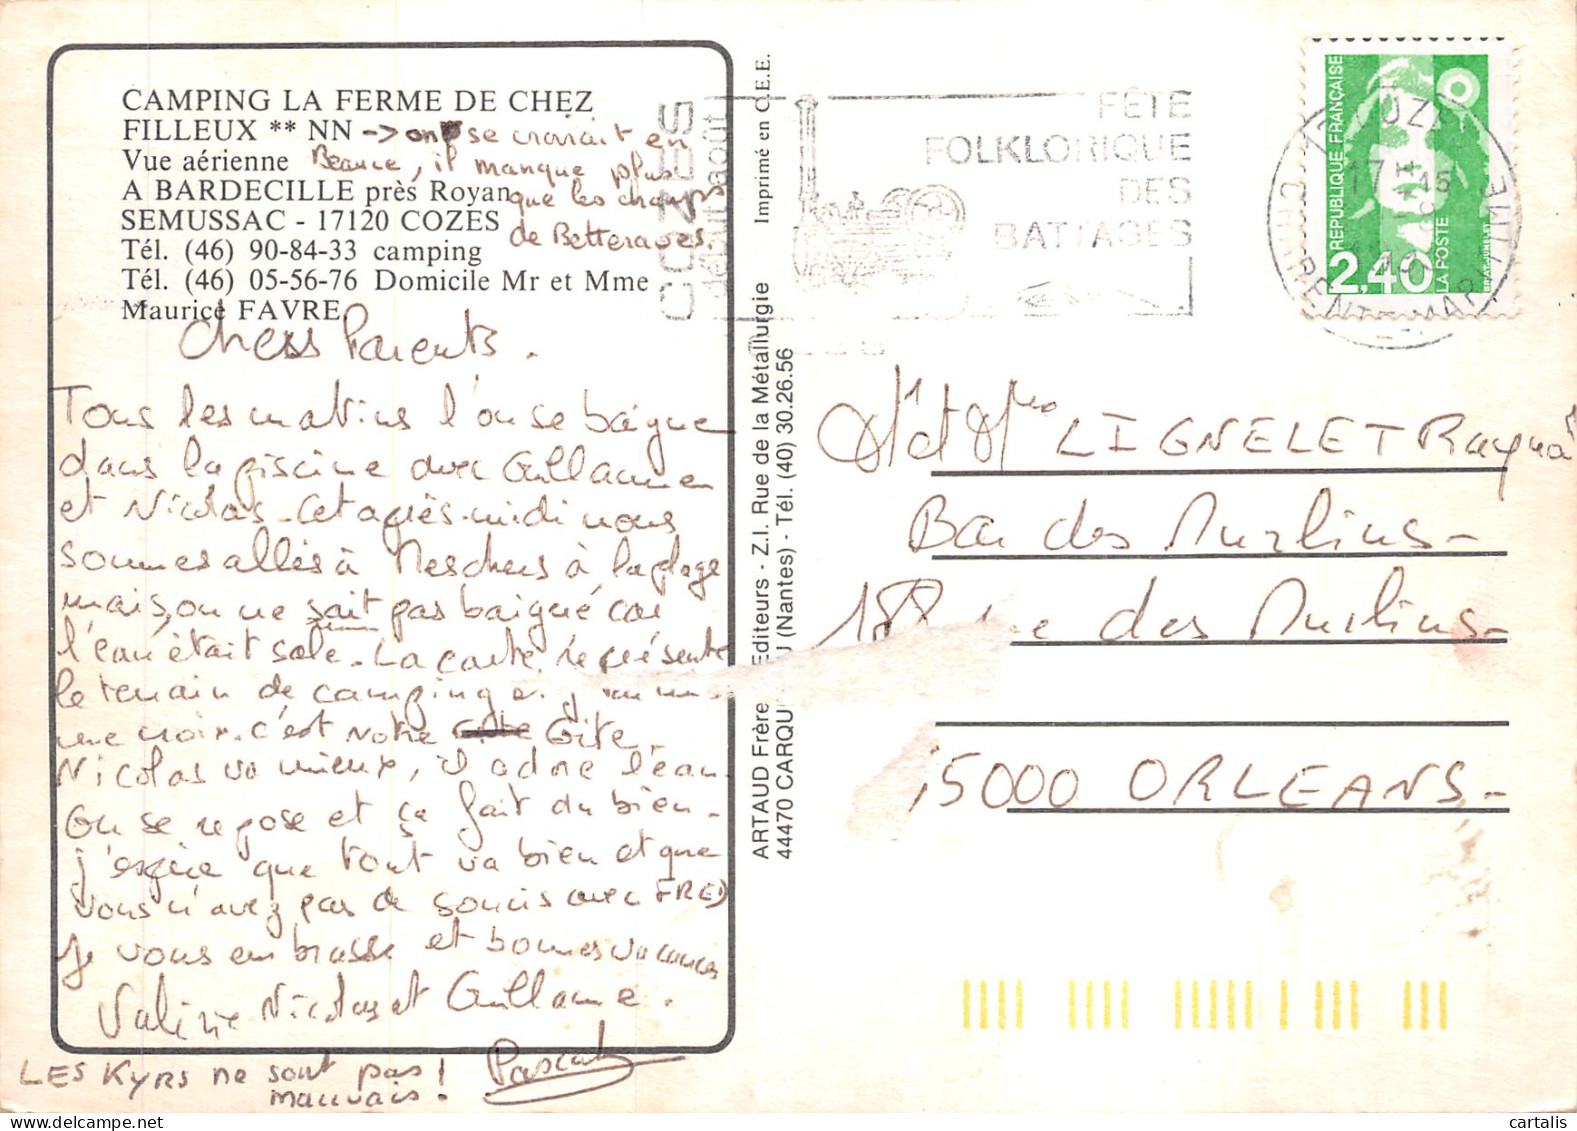 CAMPING LA FERME DE CHEZ
FILLEUX ** NN -> on se croirait en
Vue aérienne Beauce, il manque plus
A BARDECILLE près Royan que les champs
SEMUSSAC - 17120 COZES de Betteraves.
Tél. (46) 90-84-33 camping
Tél. (46) 05-56-76 Domicile Mr et Mme
Maurice FAVRE.
Chers Parents.
Tous les matins l'on se baigne
dans la piscine avec Guillaume
et Nicolas. Cet après-midi nous
sommes allés à Meschers à la plage
mais, on ne sait pas baigné car
l'eau était sale. La carte représente
le terrain de camping
une croix. c'est notre Gite.
Nicolas va mieux, il adore l'eau.
On se repose et ça fait du bien.
j'espère que tout va bien et que
vous n'avez pas de soucis avec FRED
Je vous embrasse et bonnes vacances
Valérie Nicolas et Guillaume.
Pascal
LES KYRS ne sont pas
mauvais !
ARTAUD Frère Editeurs - Z.I. Rue de la Métallurgie
44470 CARQU U (Nantes) - Tél. (40) 30.26.56
Imprimé en C.E.E.
COZES
début août
FÊTE
FOLKLORIQUE
DES
BATTAGES
CHARENTE MARITIME
REPUBLIQUE FRANÇAISE
2,40
LA POSTE
Mr et Mme LIGNELET Raymond
Bar des Murlins-
188 rue des Murlins-
45000 ORLEANS-
cartalis